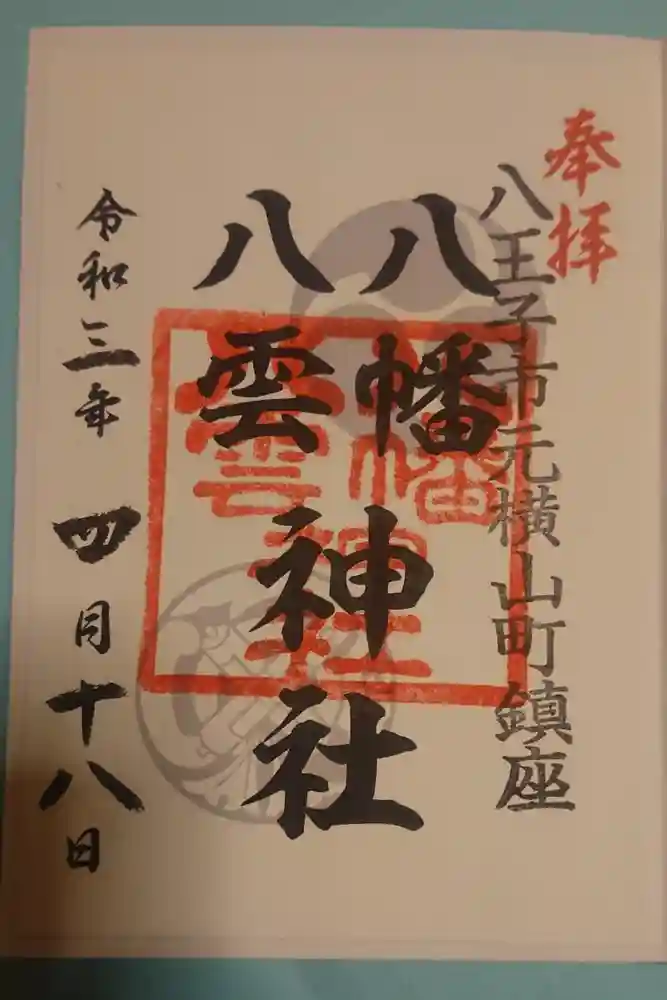 奉拝
八王子市元横山町鎮座
八幡
八雲
神社
八幡
八雲
神社
令和三年 四月十八日